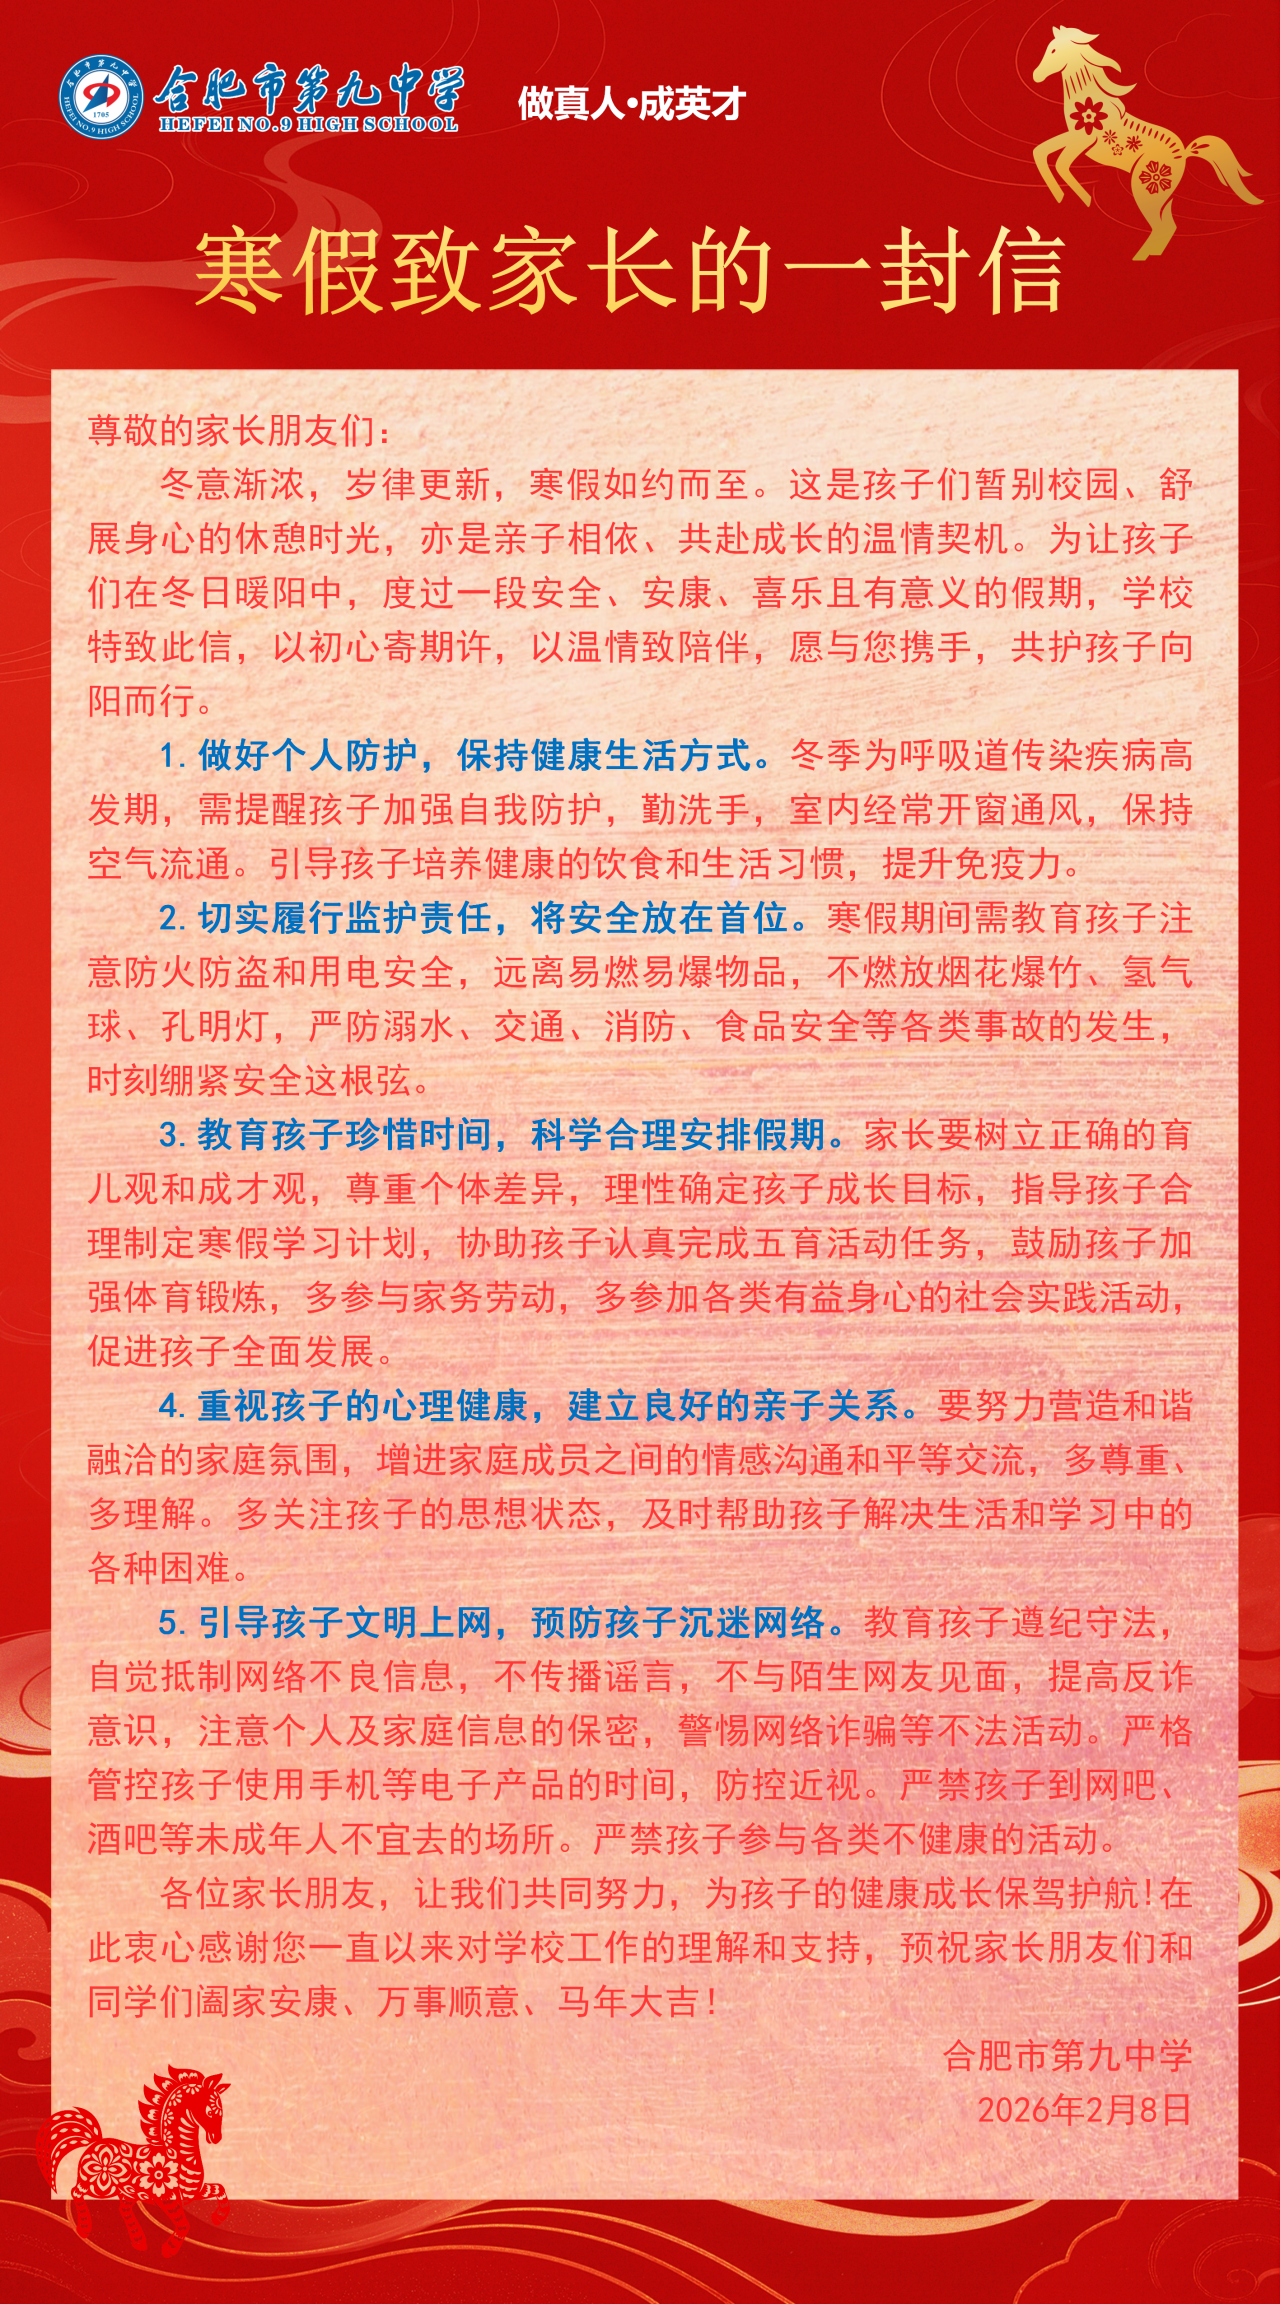 合肥市第九中学
HEFEI NO.9 HIGH SCHOOL
1705
做真人·成英才
寒假致家长的一封信
尊敬的家长朋友们：
冬意渐浓，岁律更新，寒假如约而至。这是孩子们暂别校园、舒
展身心的休憩时光，亦是亲子相依、共赴成长的温情契机。为让孩子
们在冬日暖阳中，度过一段安全、安康、喜乐且有意义的假期，学校
特致此信，以初心寄期许，以温情致陪伴，愿与您携手，共护孩子向
阳而行。
1.做好个人防护，保持健康生活方式。冬季为呼吸道传染疾病高
发期，需提醒孩子加强自我防护，勤洗手，室内经常开窗通风，保持
空气流通。引导孩子培养健康的饮食和生活习惯，提升免疫力。
2.切实履行监护责任，将安全放在首位。寒假期间需教育孩子注
意防火防盗和用电安全，远离易燃易爆物品，不燃放烟花爆竹、氢气
球、孔明灯，严防溺水、交通、消防、食品安全等各类事故的发生，
时刻绷紧安全这根弦。
3.教育孩子珍惜时间，科学合理安排假期。家长要树立正确的育
儿观和成才观，尊重个体差异，理性确定孩子成长目标，指导孩子合
理制定寒假学习计划，协助孩子认真完成五育活动任务，鼓励孩子加
强体育锻炼，多参与家务劳动，多参加各类有益身心的社会实践活动，
促进孩子全面发展。
4.重视孩子的心理健康，建立良好的亲子关系。要努力营造和谐
融洽的家庭氛围，增进家庭成员之间的情感沟通和平等交流，多尊重、
多理解。多关注孩子的思想状态，及时帮助孩子解决生活和学习中的
各种困难。
5.引导孩子文明上网，预防孩子沉迷网络。教育孩子遵纪守法，
自觉抵制网络不良信息，不传播谣言，不与陌生网友见面，提高反诈
意识，注意个人及家庭信息的保密，警惕网络诈骗等不法活动。严格
管控孩子使用手机等电子产品的时间，防控近视。严禁孩子到网吧、
酒吧等未成年人不宜去的场所。严禁孩子参与各类不健康的活动。
各位家长朋友，让我们共同努力，为孩子的健康成长保驾护航！在
此衷心感谢您一直以来对学校工作的理解和支持，预祝家长朋友们和
同学们阖家安康、万事顺意、马年大吉！
合肥市第九中学
2026年2月8日